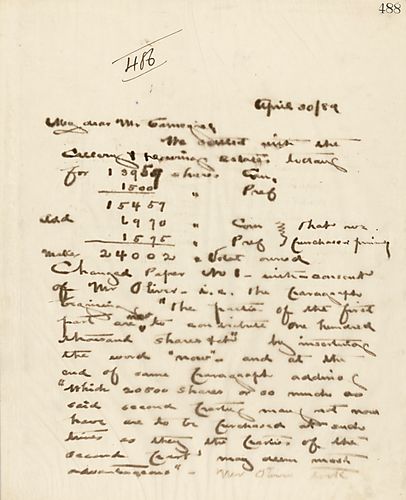 488
486
April 30/89
My dear Mr Carnegie
We settled with the
Estates
for 13959 shares Com,
1500 " Pref
15459
Add 6970 " Com that we
1575 " Pref purchased
Makes 24002 " Total owned
Changed Paper No 1 - with consent
of Mr Oliver - i.e. the paragraph
beginning "The parties of the first
part are now to contribute one hundred
thousand shares &c" by inserting
the word "now" - and at the
end of same paragraph adding
"Which 20500 shares or so much as
said second parties may not now
have are to be purchased at such
times as they the parties of the
second part may deem most
advantageous" - Mr Oliver